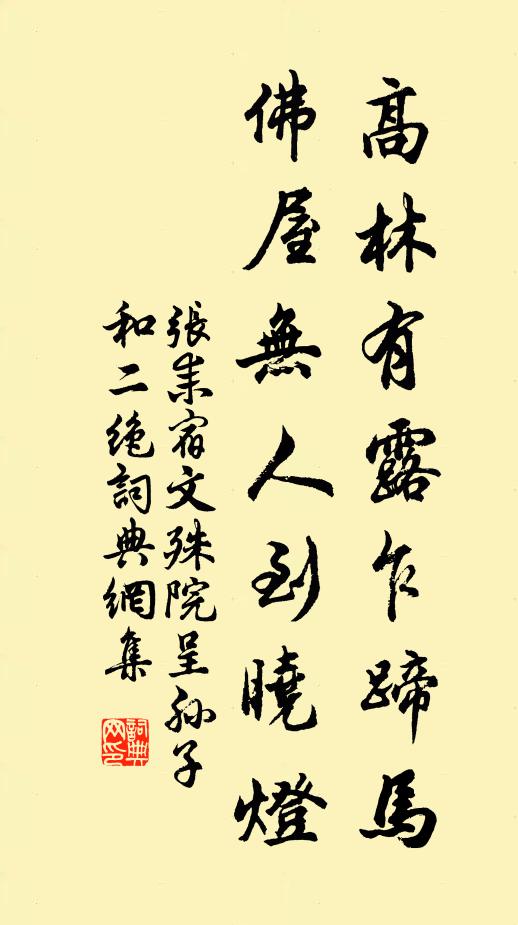 高林有露乍蹄馬
佛屋無人到曉燈
張耒宿文殊院呈孫子
和二絶詞典網集
詞典
网印